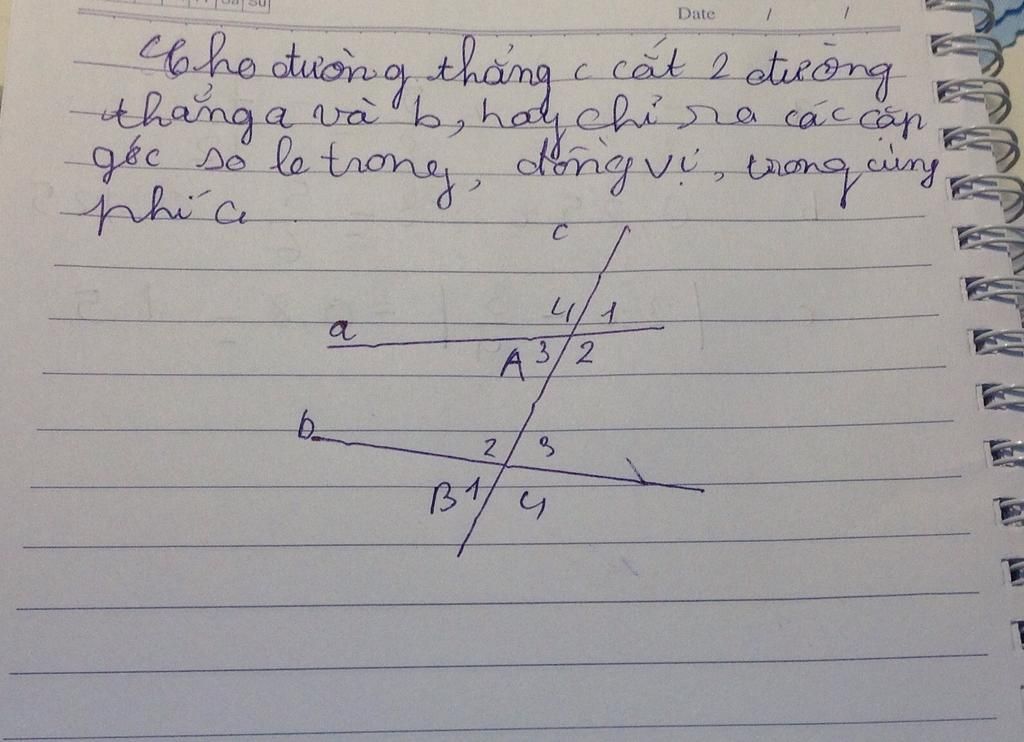 Date / /
Cho đường thẳng c cắt 2 đường
thẳng a và b, hãy chỉ ra các cặp
góc so le trong, đồng vị, trong cùng
phía
c
4 1
a
A 3 2
b
2 3
B 1 4